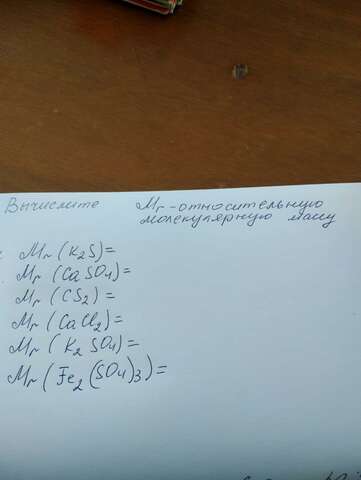 Вычислите Mr - относительную
молекулярную массу
Mr (K2S) =
Mr (CaSO4) =
Mr (CS2) =
Mr (CaCl2) =
Mr (K2SO4) =
Mr (Fe2(SO4)3) =